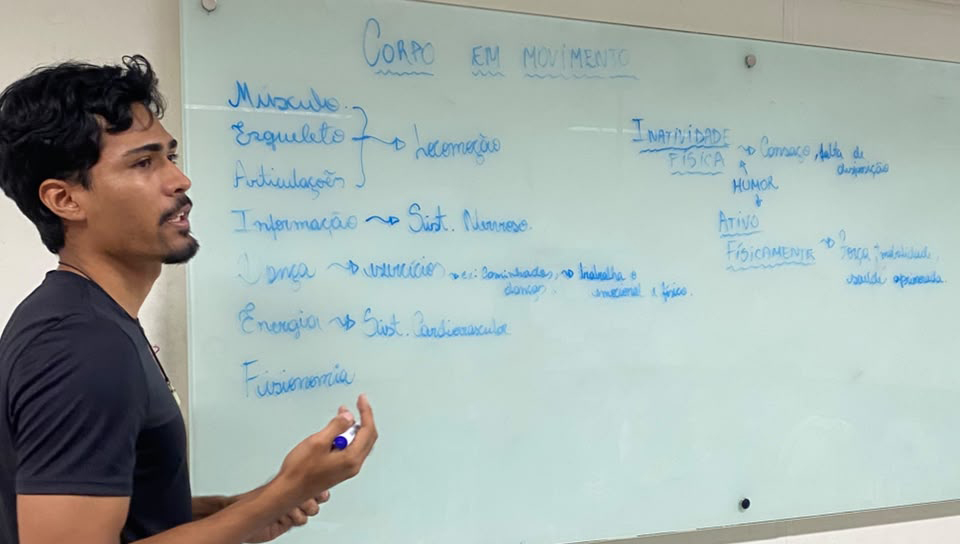 CORPO EM MOVIMENTO
Músculo
Esqueleto → Locomoção
Articulações
Informação → Sist. Nervoso.
Dança → exercícios → ex: Caminhadas, → trabalha o
danças. emocional e físico.
Energia → Sist. Cardiovascular
Fisionomia
INATIVIDADE
FÍSICA → Cansaço, falta de
disposição
HUMOR
ATIVO
FÍSICAMENTE → Força, mobilidade,
saúde aprimorada.